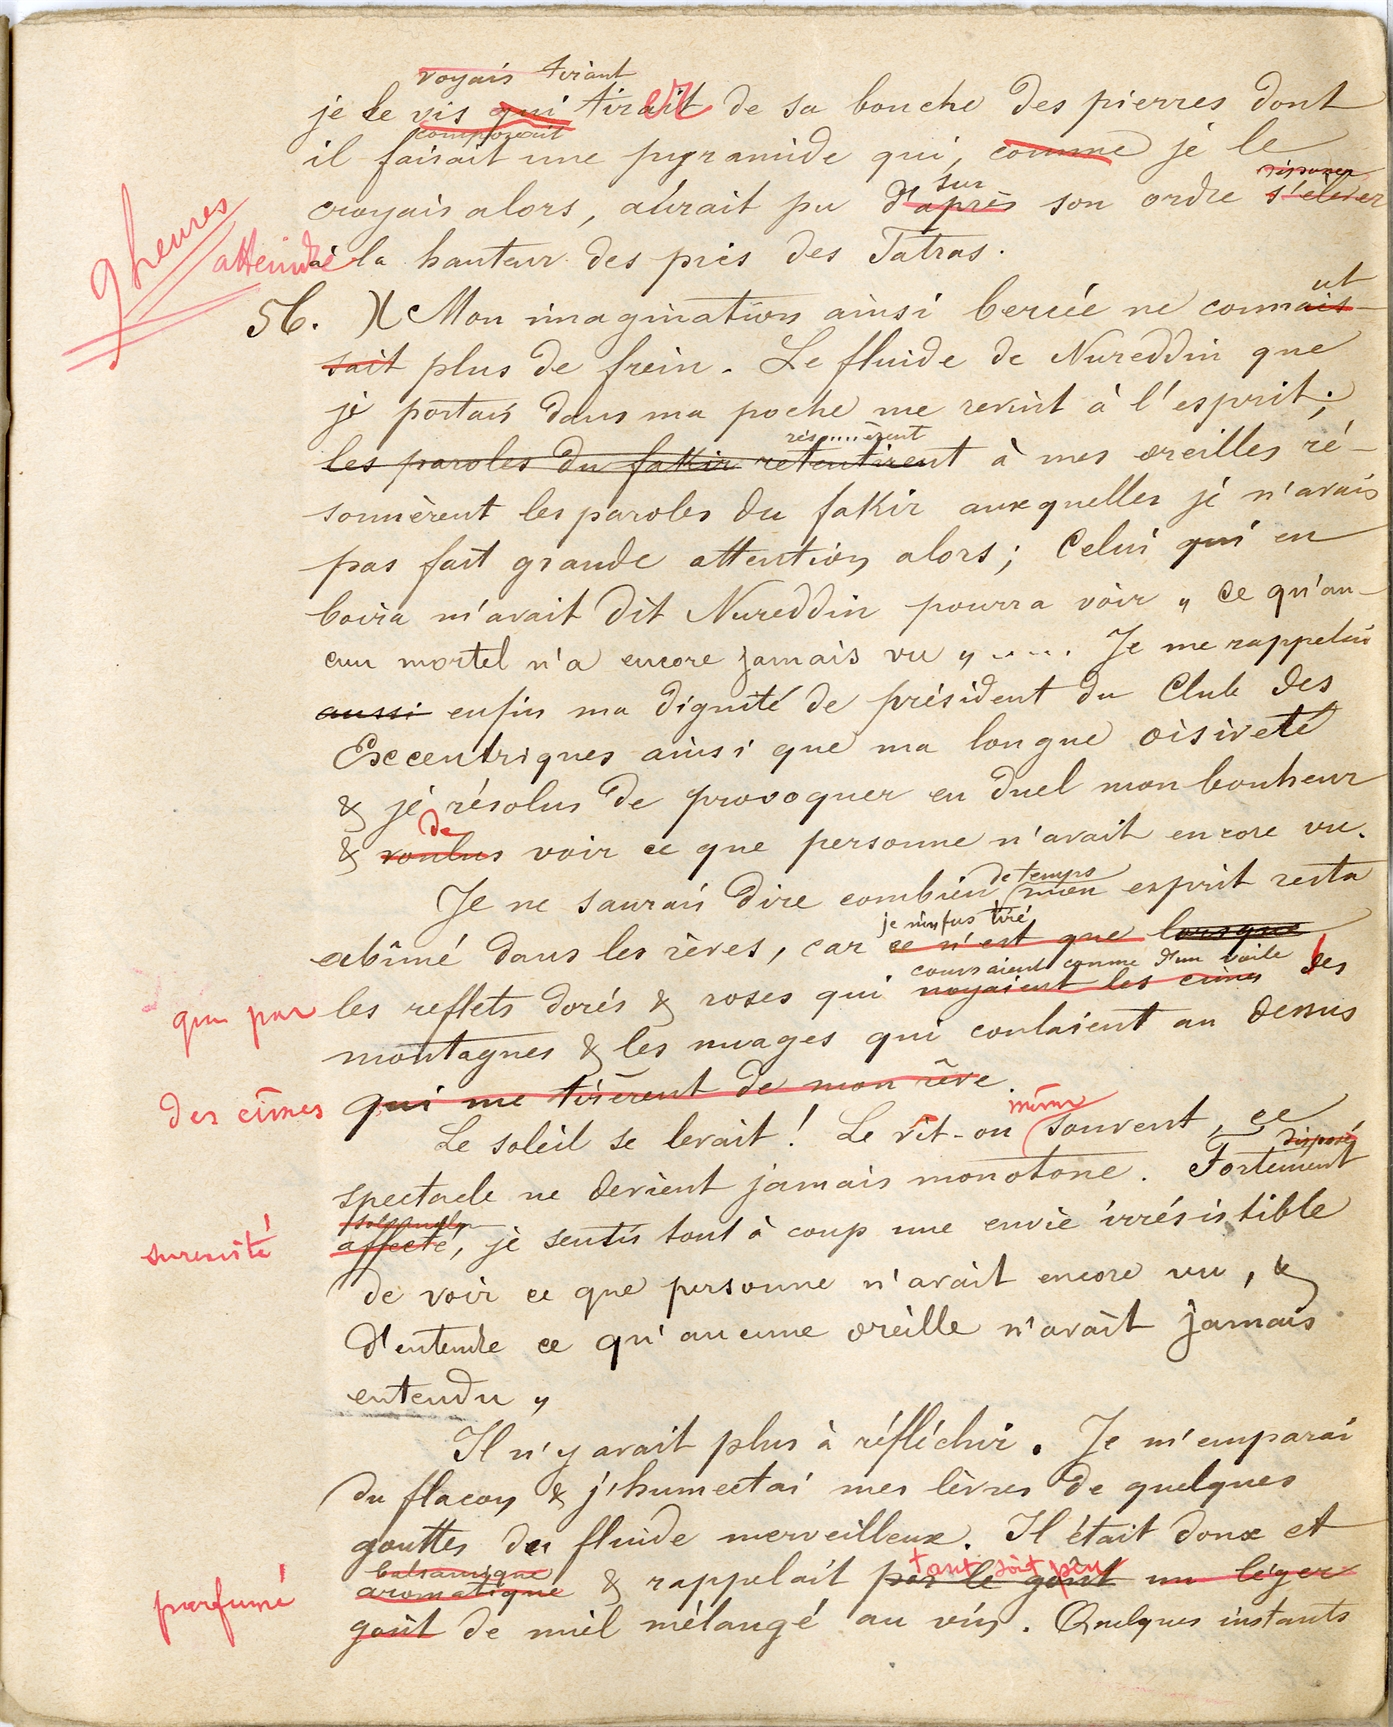 voyais tirant
je le vis qui tirait er de sa bouche des pierres dont
composait
il faisait une pyramide qui, comme je le
sur
croyais alors, aurait pu d'après son ordre s'élever
9 heures
atteindre
à la hauteur des pics des Tatras.
ut
56. )( Mon imagination ainsi bercée ne connais-
sait plus de frein. Le fluide de Nureddin que
je portais dans ma poche me revint à l'esprit;
rés....èrent
les paroles du fakir retentirent à mes oreilles ré-
sonnèrent les paroles du fakir auxquelles je n'avais
pas fait grande attention alors; Celui qui en
boira m'avait dit Nureddin pourra voir „ Ce qu'au-
cun mortel n'a encore jamais vu „ ..... Je me rappelai
aussi enfin ma dignité de président du Club des
Excentriques ainsi que ma longue oisiveté
& je résolus de provoquer en duel mon bonheur
de
& voulus voir ce que personne n'avait encore vu.
de temps
Je ne saurais dire combien mon esprit resta
je n'en fus tiré
abîmé dans les rêves, car ce n'est que lorsque
couvraient comme d'un voile
que par
les reflets dorés & roses qui noyaient les cimes des
montagnes & les nuages qui coulaient au dessus
des cîmes
qui me tirèrent de mon rêve.
même
Le soleil se levait! Le vit-on souvent, ce
disposé
spectacle ne devient jamais monotone. Fortement
surexcité
affecté, je sentis tout à coup une envie irrésistible
de voir ce que personne n'avait encore vu, &
d'entendre ce qu'aucune oreille n'avait jamais
entendu „
Il n'y avait plus à réfléchir. Je m'emparai
du flacon & j'humectai mes lèvres de quelques
gouttes du fluide merveilleux. Il était doux et
balsamique
tant soit peu
parfumé
aromatique & rappelait par le goût un léger
goût de miel mélangé au vin. Quelques instants